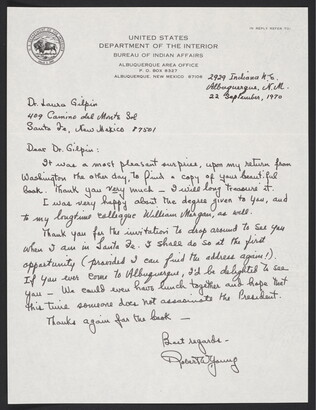 IN REPLY REFER TO:
UNITED STATES
DEPARTMENT OF THE INTERIOR
BUREAU OF INDIAN AFFAIRS
ALBUQUERQUE AREA OFFICE
P. O. BOX 8327
ALBUQUERQUE, NEW MEXICO 87108
2929 Indiana N.E.
Albuquerque, N.M.
22 September, 1970
Dr. Laura Gilpin
409 Camino del Monte Sol
Santa Fe, New Mexico 87501
Dear Dr. Gilpin:
It was a most pleasant surprise, upon my return from
Washington the other day, to find a copy of your beautiful
book. Thank you very much — I will long treasure it.
I was very happy about the degree given to you, and
to my longtime colleague William Morgan, as well.
Thank you for the invitation to drop around to see you
when I am in Santa Fe. I shall do so at the first
opportunity (provided I can find the address again!).
If you ever come to Albuquerque, I'd be delighted to see
you — We could even have lunch together and hope that
this time someone does not assassinate the President.
Thanks again for the book —
Best regards —
Robert W Young